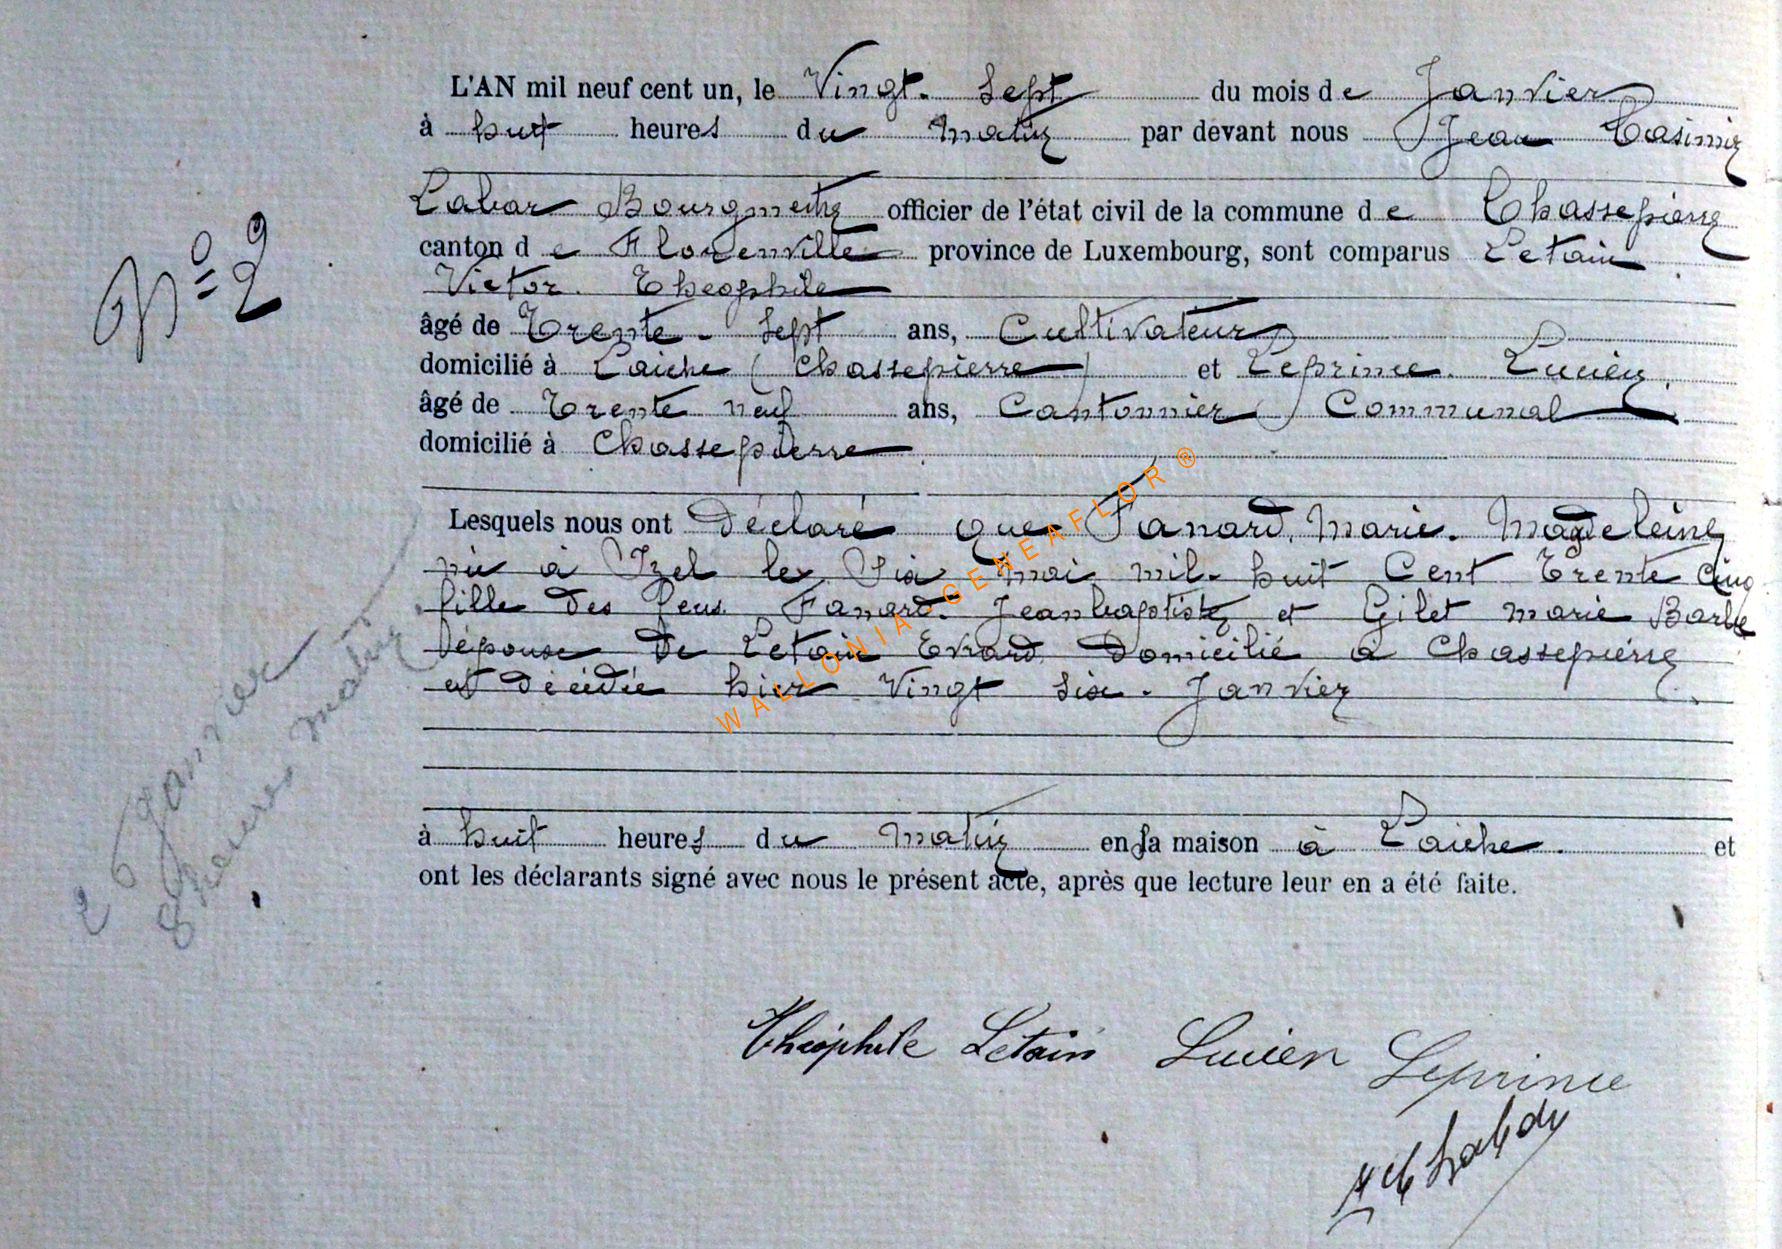 L'AN mil neuf cent un, le Vingt. Sept du mois de Janvier
à huit heures du matin par devant nous Jean Casimir
Labar Bourgmestre officier de l'état civil de la commune de Chassepierre
canton de Florenville province de Luxembourg, sont comparus Letain
Victor. Théophile
âgé de Trente. Sept ans, Cultivateur
domicilié à Laiche (Chassepierre) et Leprince. Lucien
âgé de Trente neuf ans, Cantonnier Communal
domicilié à Chassepierre
Lesquels nous ont Déclaré que Fanard, Marie. Magdeleine
née à Izel le Six mai mil. huit Cent Trente Cinq
fille des feus Fanard. Jeanbaptiste et Gilet marie Barbe
épouse De Letain Evrard Domicilié à Chassepierre
est décédée hier Vingt six. Janvier
à huit heures du matin en sa maison à Laiche. et
ont les déclarants signé avec nous le présent acte, après que lecture leur en a été faite.
Théophile Letain Lucien Leprince
N° 2
26 Janvier
8 heures matin
WALLONIA-GENEAFLOR ®